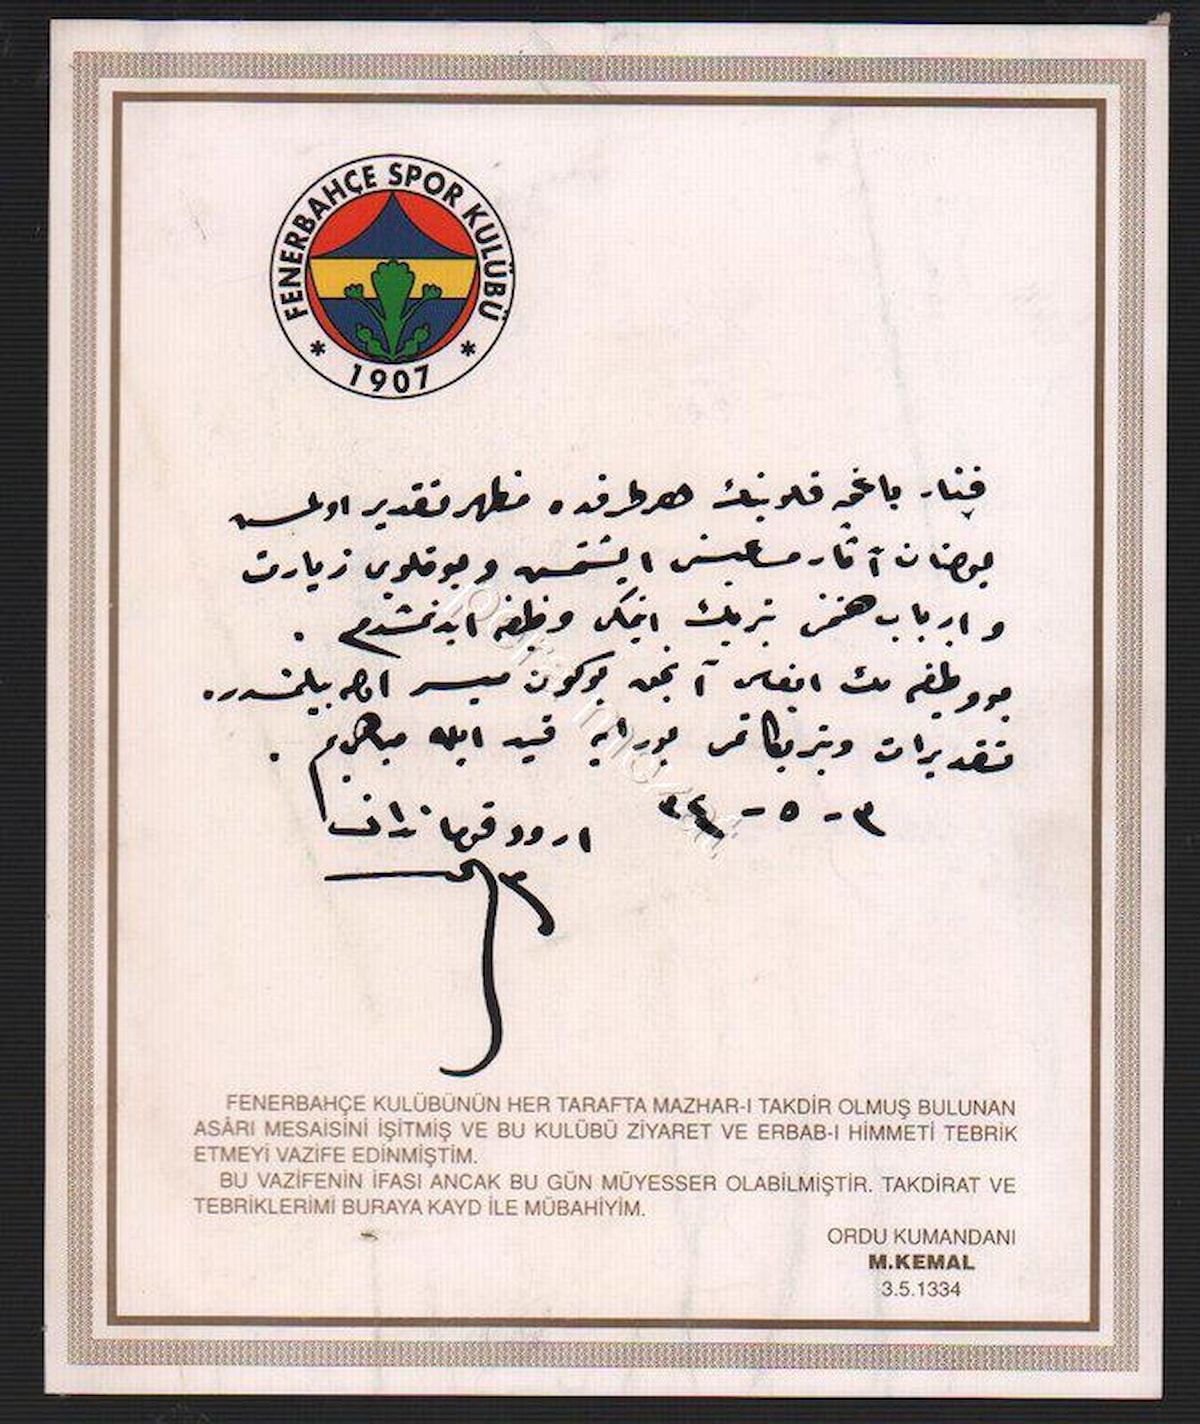 FENERBAHÇE SPOR KULÜBÜ
* 1907 *
فنار باغچه قلوبنك هر طرفده مظهر تقدير اولمش
بولنان آثار مساعيسنى ايشتمش و بو قلوبى زيارت
و ارباب همتنى تبريك ايتمكى وظيفه ايدنمشدم .
بو وظيفه نك ايفاسى آنجق بوكون ميسر اوله بيلمشدر .
تقديرات و تبريكاتمى بورايه قيد ايله مباهى يم .
٣ - ٥ - ٣٤
اردو قوماندانى
FENERBAHÇE KULÜBÜNÜN HER TARAFTA MAZHAR-I TAKDİR OLMUŞ BULUNAN
ASÂRI MESAİSİNİ İŞİTMİŞ VE BU KULÜBÜ ZİYARET VE ERBAB-I HİMMETİ TEBRİK
ETMEYİ VAZİFE EDİNMİŞTİM.
BU VAZİFENİN İFASI ANCAK BU GÜN MÜYESSER OLABİLMİŞTİR. TAKDİRAT VE
TEBRİKLERİMİ BURAYA KAYD İLE MÜBAHİYİM.
ORDU KUMANDANI
M.KEMAL
3.5.1334